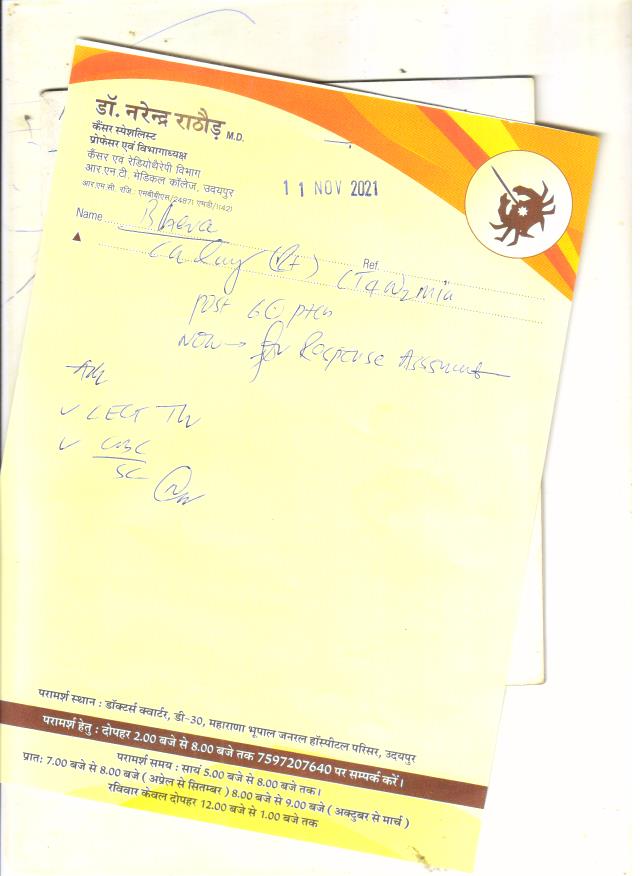 डॉ. नरेन्द्र राठौड़ M.D.
कैंसर स्पेशलिस्ट
प्रोफेसर एवं विभागाध्यक्ष
कैंसर एवं रेडियोथैरेपी विभाग
आर.एन.टी. मेडिकल कॉलेज, उदयपुर
आर.एम.सी. रजि. एमबीबीएस/24871 एमडी/1(42)
11 NOV 2021
Name
Ref.
Ca Lung (Rt) (T4 N2 M1a
post 6
Now → for Response Assessment
Adv
CECT Th
CBC
SC
परामर्श स्थान : डॉक्टर्स क्वार्टर, डी-30, महाराणा भूपाल जनरल हॉस्पीटल परिसर, उदयपुर
परामर्श हेतु : दोपहर 2.00 बजे से 8.00 बजे तक 7597207640 पर सम्पर्क करें।
परामर्श समय : सायं 5.00 बजे से 8.00 बजे तक।
प्रात: 7.00 बजे से 8.00 बजे ( अप्रेल से सितम्बर ) 8.00 बजे से 9.00 बजे ( अक्टुबर से मार्च )
रविवार केवल दोपहर 12.00 बजे से 1.00 बजे तक